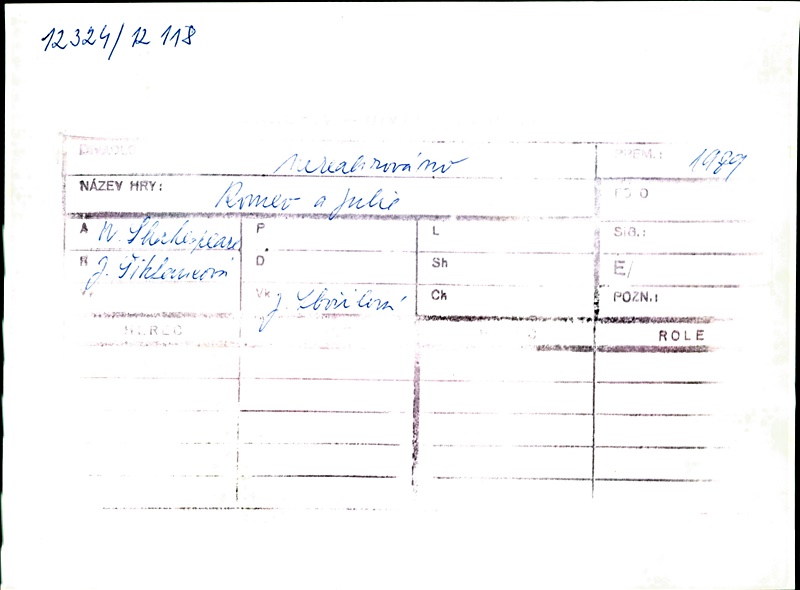 12324/12 118
DIVADLO nerealizováno PREM.: 1989
NÁZEV HRY: Romeo a Julie FOTO
A W. Shakespeare P L SIG.:
R J. D Sh E/
Vk J. Ch POZN.:
HEREC ROLE